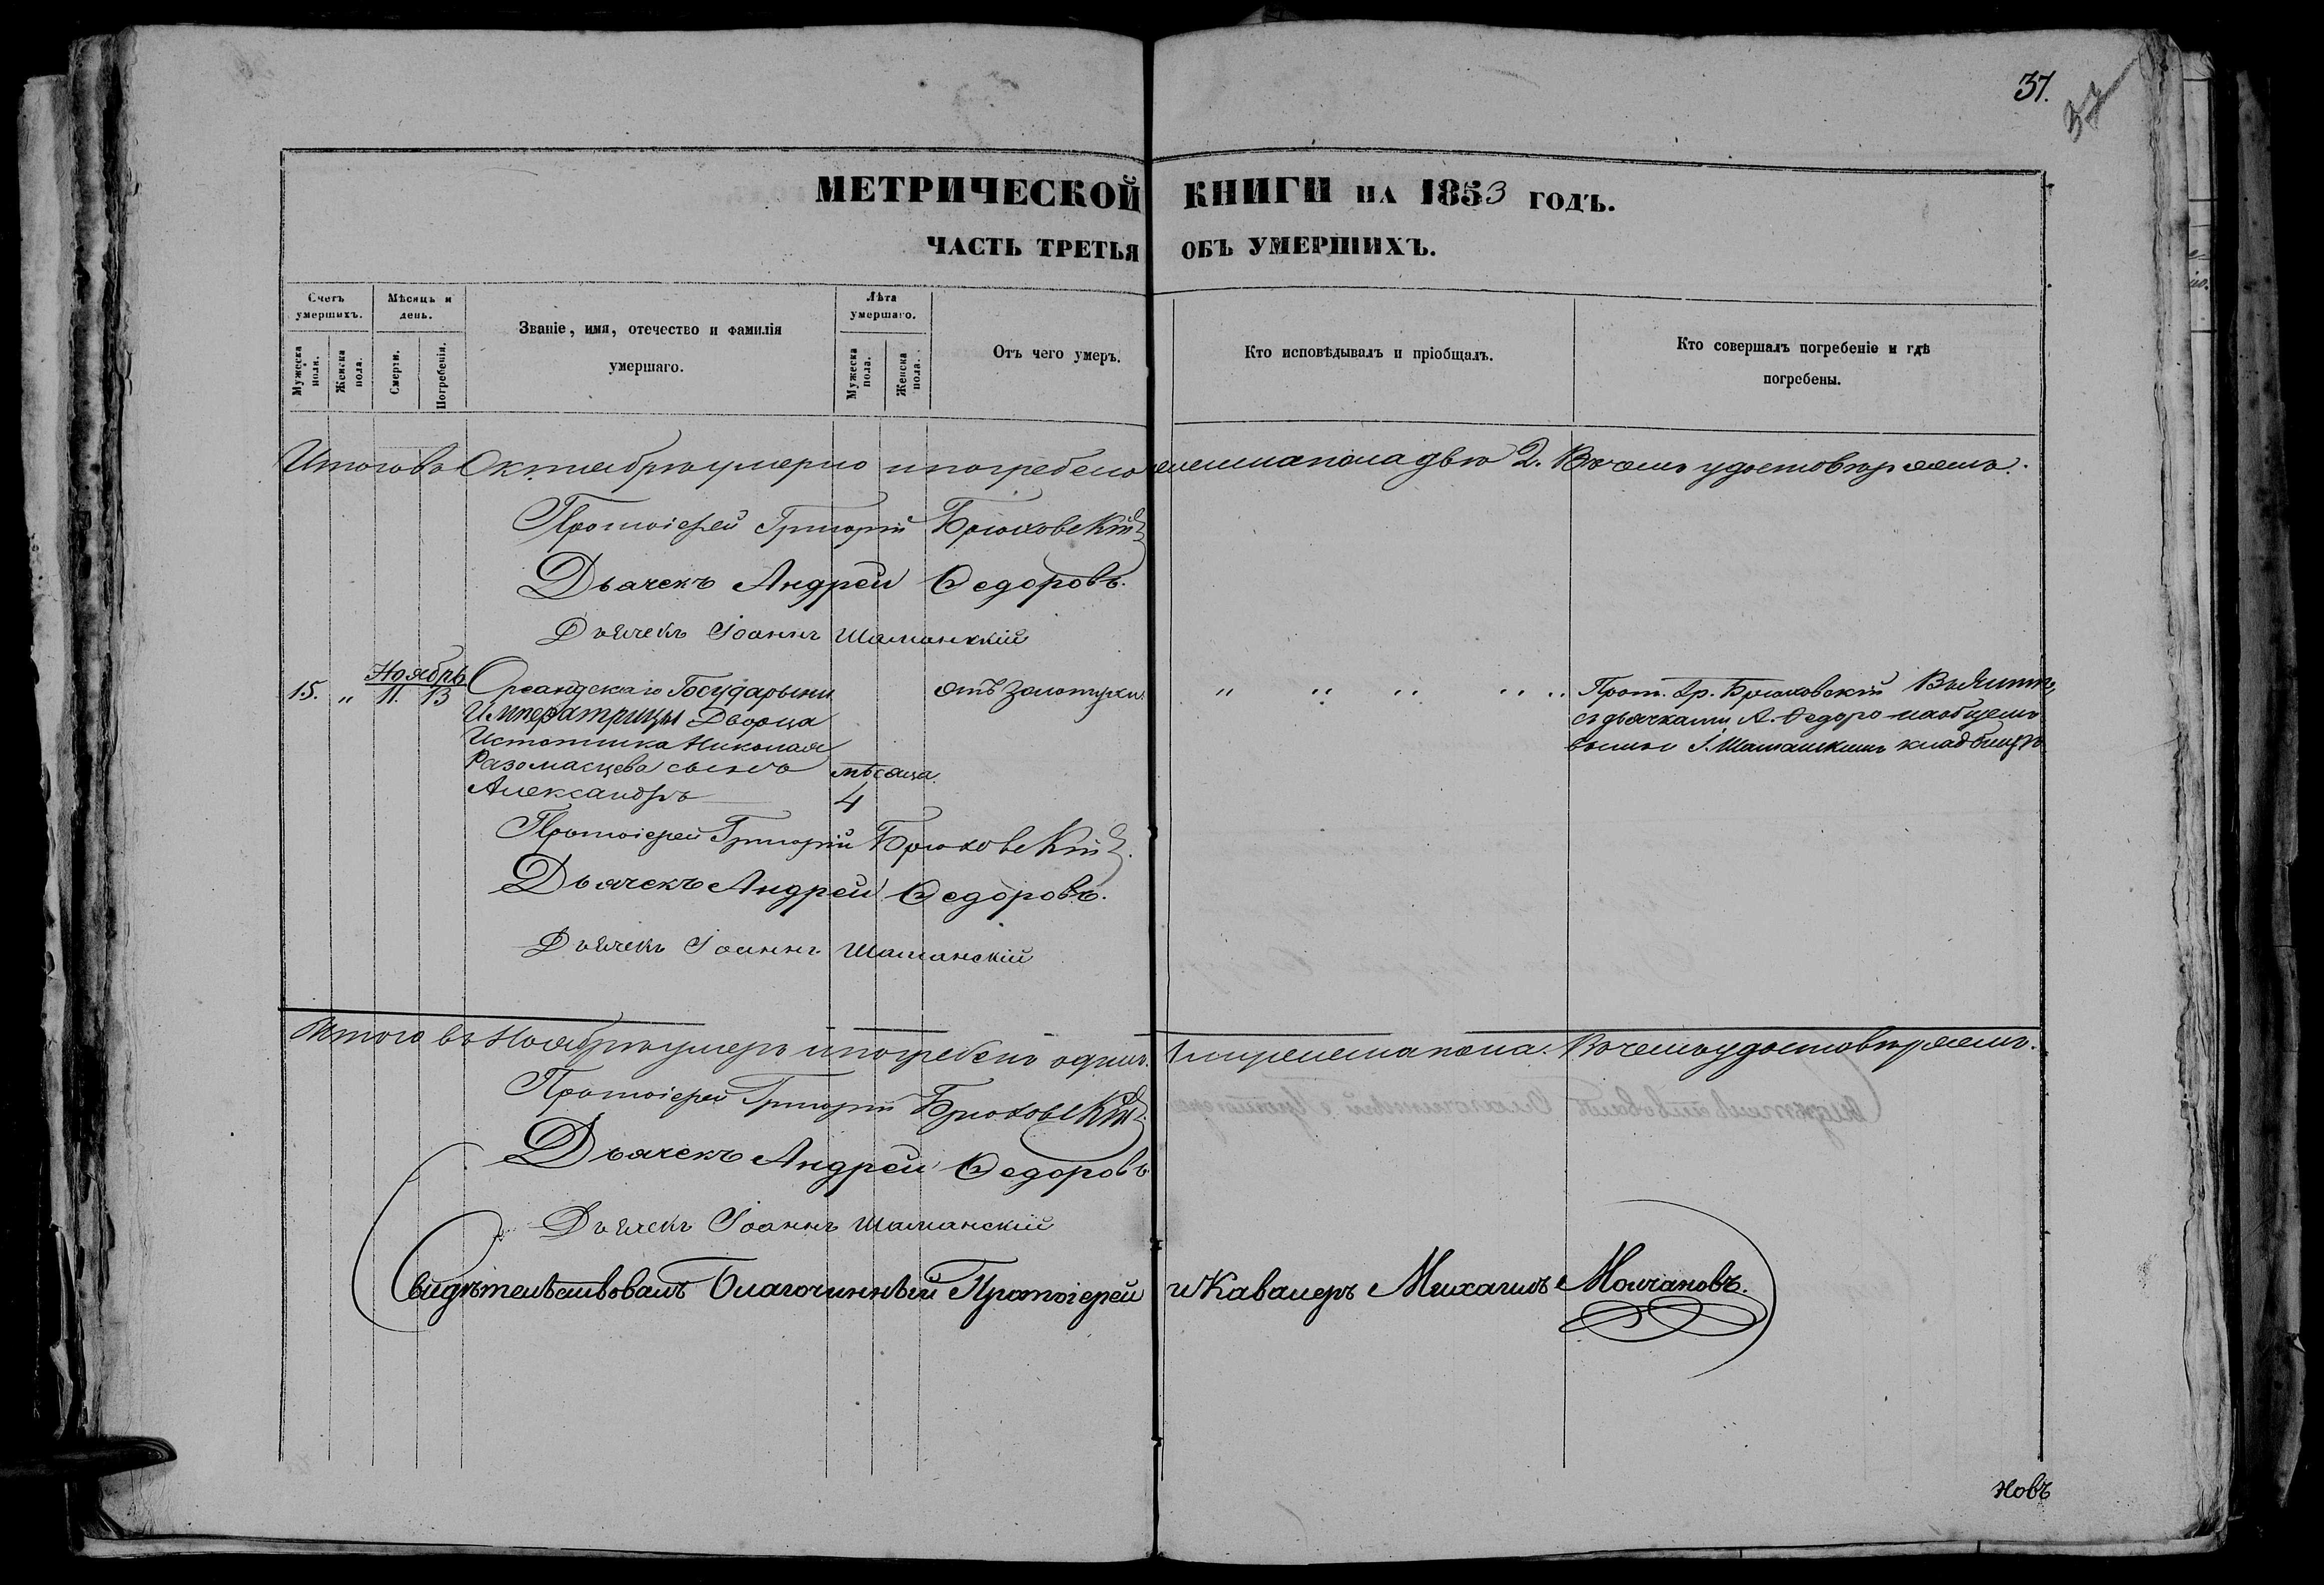 37.
37
МЕТРИЧЕСКОЙ КНИГИ НА 1853 ГОДЪ.
ЧАСТЬ ТРЕТЬЯ ОБЪ УМЕРШИХЪ.
Счетъ умершихъ.
Мужеска пола.
Женска пола.
Мѣсяцъ и день.
Смерти.
Погребенія.
Званіе, имя, отечество и фамилія
умершаго.
Лѣта умершаго.
Мужеска пола.
Женска пола.
Отъ чего умеръ.
Кто исповѣдывалъ и пріобщалъ.
Кто совершалъ погребеніе и гдѣ
погребены.
Итого въ Октябрѣ умерло и погребено женска пола двѣ 2. Въ чемъ удостовѣряемъ.
Протоіерей Григорій Брюховскій
Дьячекъ Андрей Ѳедоровъ.
Дьячекъ Іоаннъ Шаманскій
Ноябрь
15. „ 11. 13 Ореандскаго Государыни отъ золотухи. „ „ „ „ „ Прот. Гр. Брюховскій въ Ялтѣ,
Императрицы Дворца съ дьячками А. Ѳедоро- на общемъ
Истопника Николая вымъ и І. Шаманскимъ кладбищѣ
Разомасцева сынъ мѣсяца.
Александръ 4
Протоіерей Григорій Брюховскій.
Дьячекъ Андрей Ѳедоровъ.
Дьячекъ Іоаннъ Шаманскій
Итого въ Ноябрѣ умеръ и погребенъ одинъ 1 мужеска пола. Въ чемъ удостовѣряемъ.
Протоіерей Григорій Брюховскій.
Дьячекъ Андрей Ѳедоровъ
Дьячекъ Іоаннъ Шаманскій
Свидѣтельствовалъ Благочинный Протоіерей и Кавалеръ Михаилъ Молчановъ.
новъ